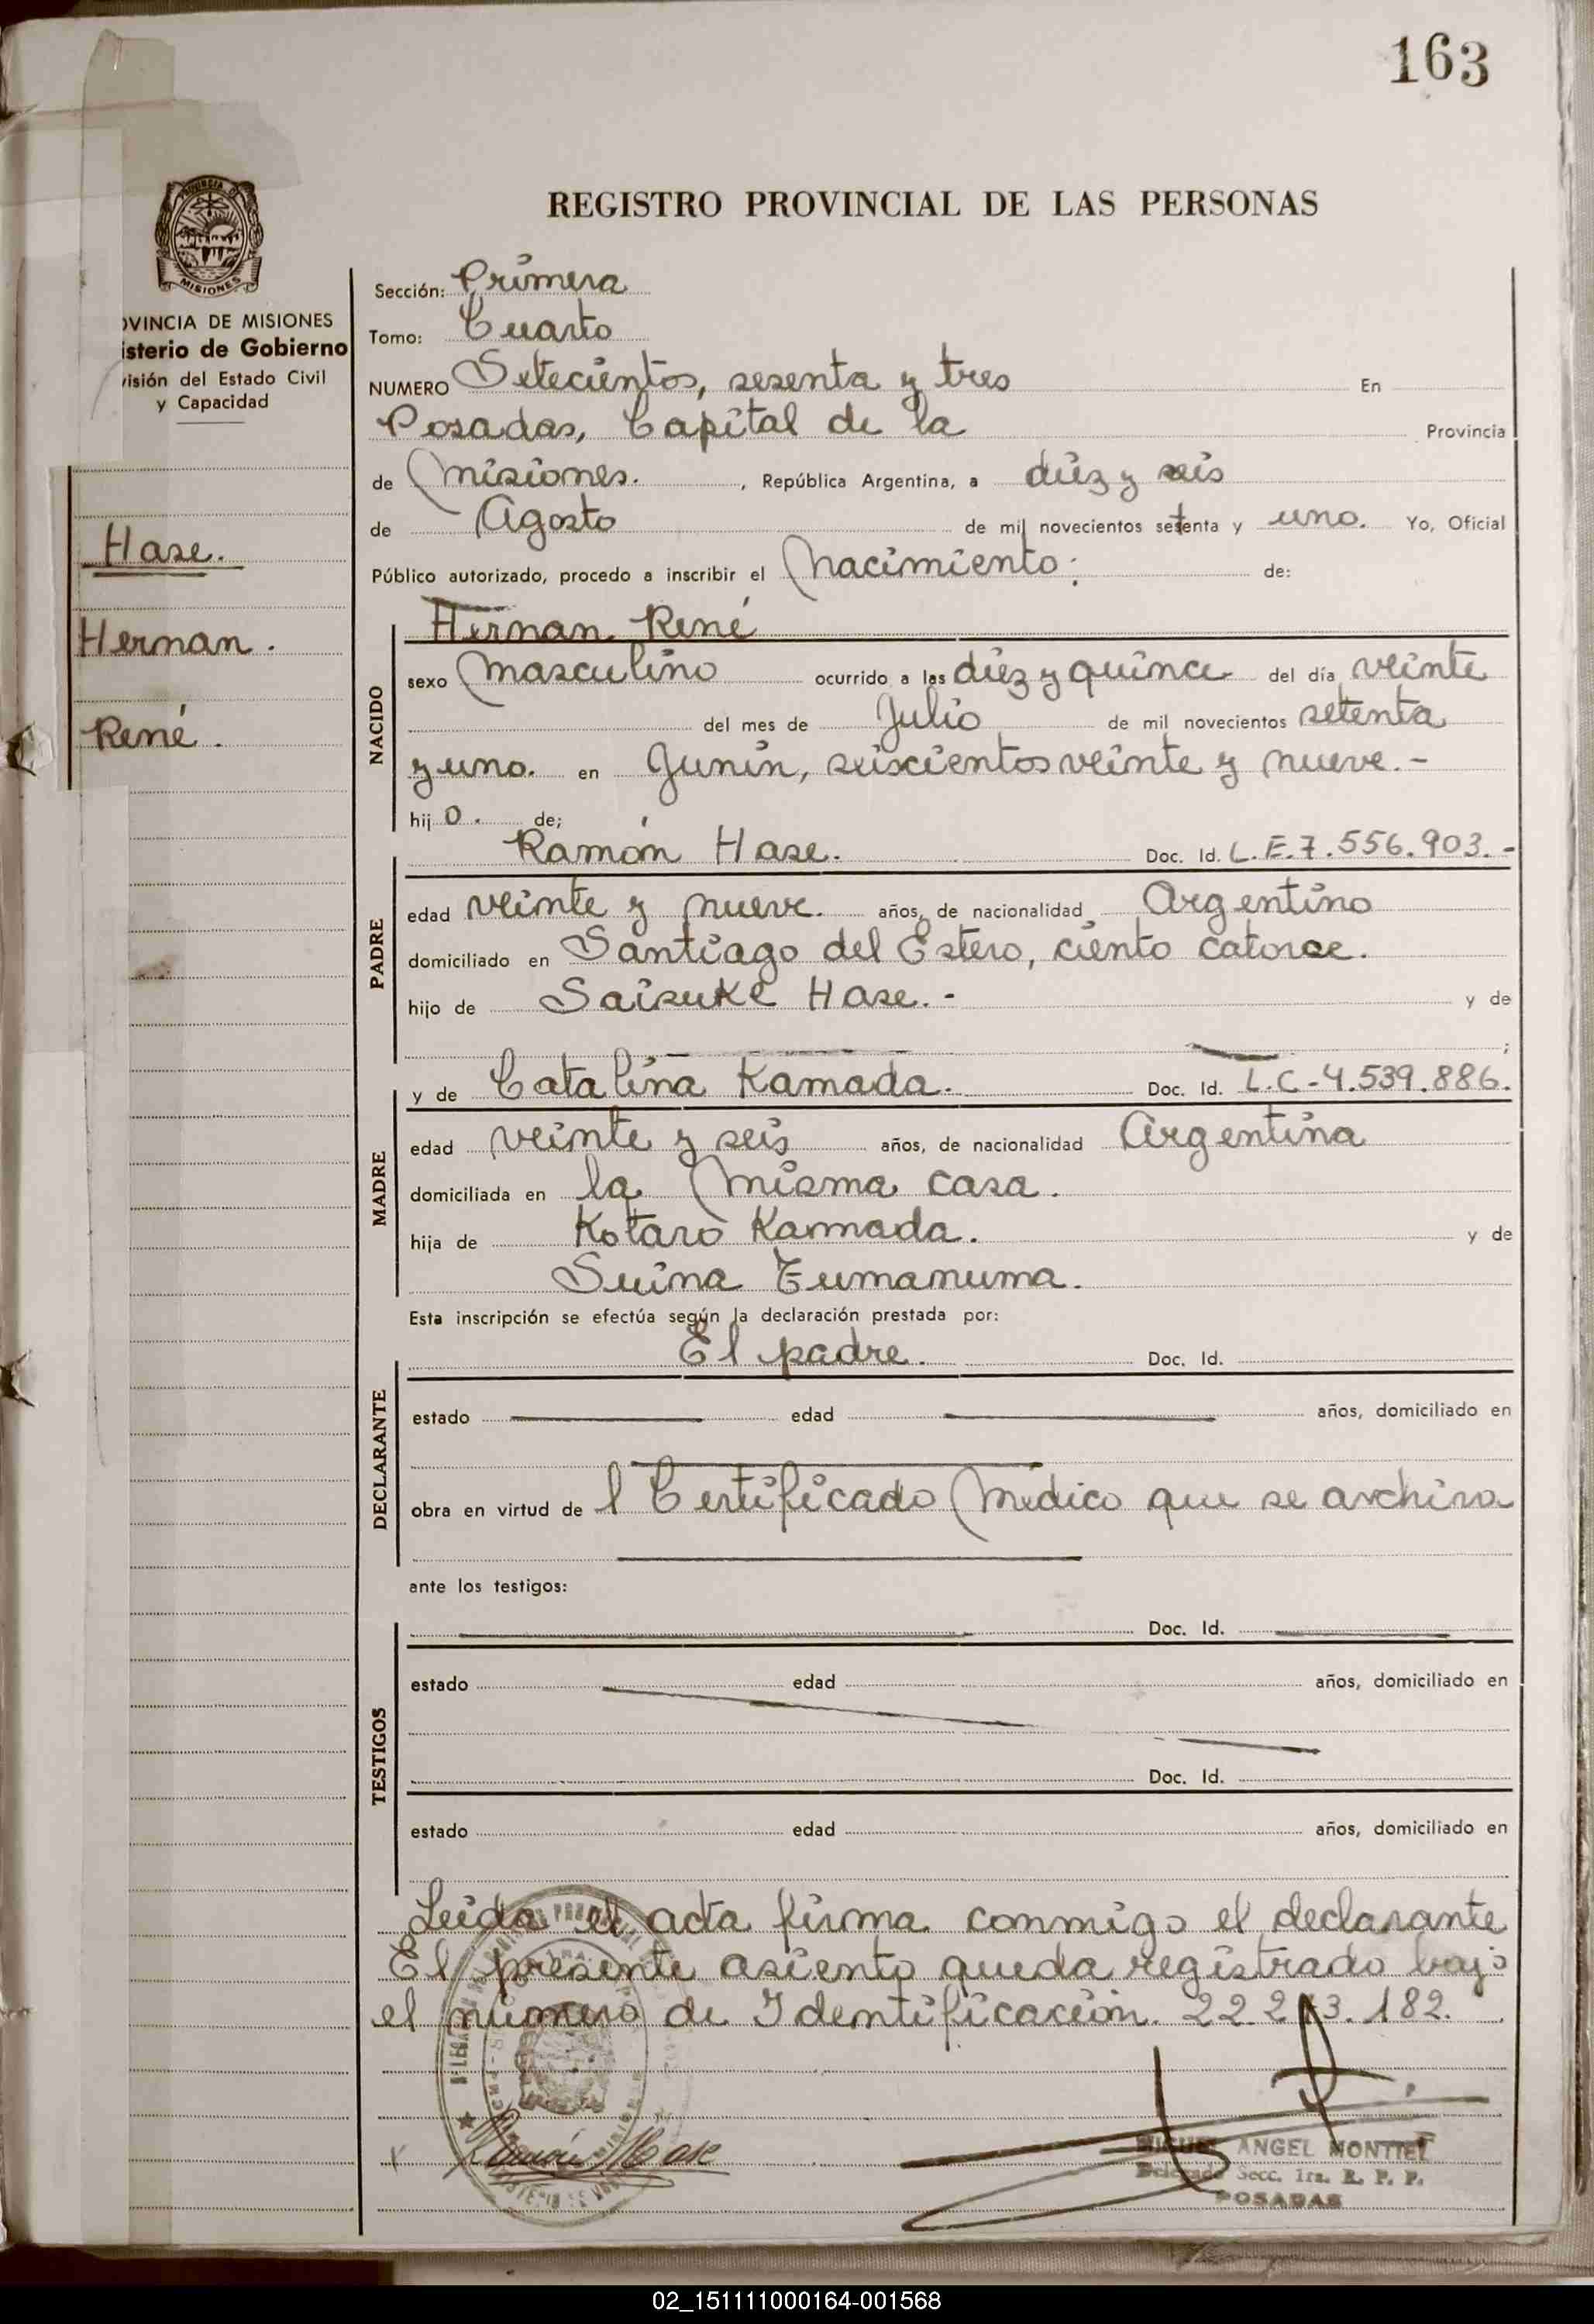 163
PROVINCIA D
MISIONES
OVINCIA DE MISIONES
isterio de Gobierno
visión del Estado Civil
y Capacidad
Hase.
Hernan.
René.
REGISTRO PROVINCIAL DE LAS PERSONAS
Sección: Primera
Tomo: Cuarto
NUMERO Setecientos, sesenta y tres En
Posadas, Capital de la Provincia
de Misiones. , República Argentina, a diez y seis
de Agosto de mil novecientos setenta y uno. Yo, Oficial
Público autorizado, procedo a inscribir el Nacimiento: de:
Hernan René
NACIDO
sexo Masculino ocurrido a las diez y quince del día veinte
del mes de Julio de mil novecientos setenta
y uno. en Junín, seiscientos veinte y nueve.-
hijo. de;
Ramón Hase. Doc. Id. L.E.7.556.903.-
PADRE
edad veinte y nueve. años, de nacionalidad Argentino
domiciliado en Santiago del Estero, ciento catorce.
hijo de Saisuke Hase.- y de
y de Catalina Kamada. Doc. Id. L.C-4.539.886.
MADRE
edad veinte y seis años, de nacionalidad Argentina
domiciliada en la misma casa.
hija de Kotaro Kamada. y de
Suina Tumanuma.
Esta inscripción se efectúa según la declaración prestada por:
El padre. Doc. Id.
DECLARANTE
estado edad años, domiciliado en
obra en virtud de l Certificado Médico que se archiva
ante los testigos:
Doc. Id.
TESTIGOS
estado edad años, domiciliado en
Doc. Id.
estado edad años, domiciliado en
Leida el acta firma conmigo el declarante
El presente asiento queda registrado bajo
el número de Identificación. 22.213.182.
Ramón Hase
MIGUEL ANGEL MONTIEL
Delegado Secc. 1ra. R. P. P.
POSADAS
02_151111000164-001568